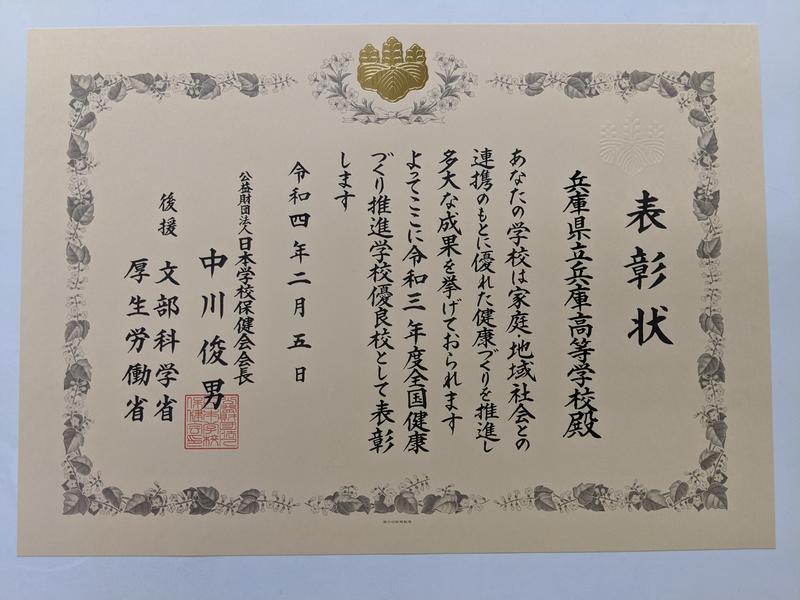 表彰状
兵庫県立兵庫高等学校殿
あなたの学校は家庭・地域社会との
連携のもとに優れた健康づくりを推進し
多大な成果を挙げておられます
よってここに令和三年度全国健康
づくり推進学校優良校として表彰
します
令和四年二月五日
公益財団法人日本学校保健会会長
中川俊男
後援 文部科学省
厚生労働省